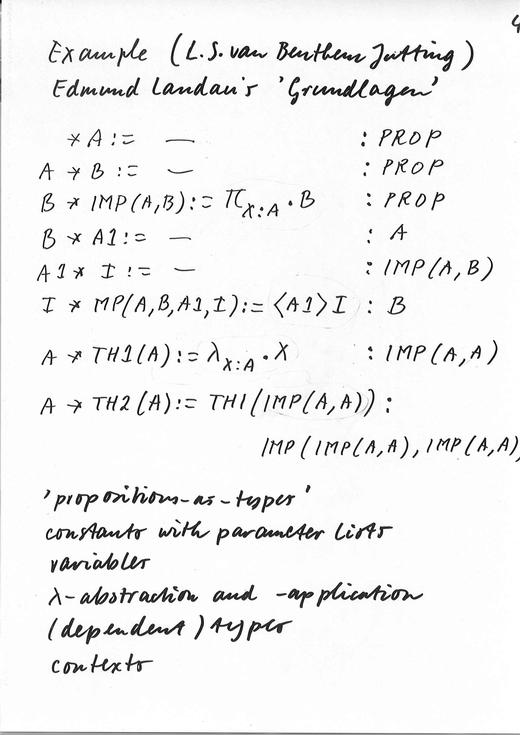 4
Example (L.S. van Benthem Jutting)
Edmund Landau's 'Grundlagen'
* A := — : PROP
A * B := — : PROP
B * IMP(A,B) := Π_{X:A} . B : PROP
B * A1 := — : A
A1 * I := — : IMP(A,B)
I * MP(A,B,A1,I) := ⟨A1⟩I : B
A * TH1(A) := λ_{X:A} . X : IMP(A,A)
A * TH2(A) := TH1(IMP(A,A)) :
IMP(IMP(A,A), IMP(A,A)
'propositions-as-types'
constants with parameter lists
variables
λ-abstraction and -application
(dependent) types
contexts